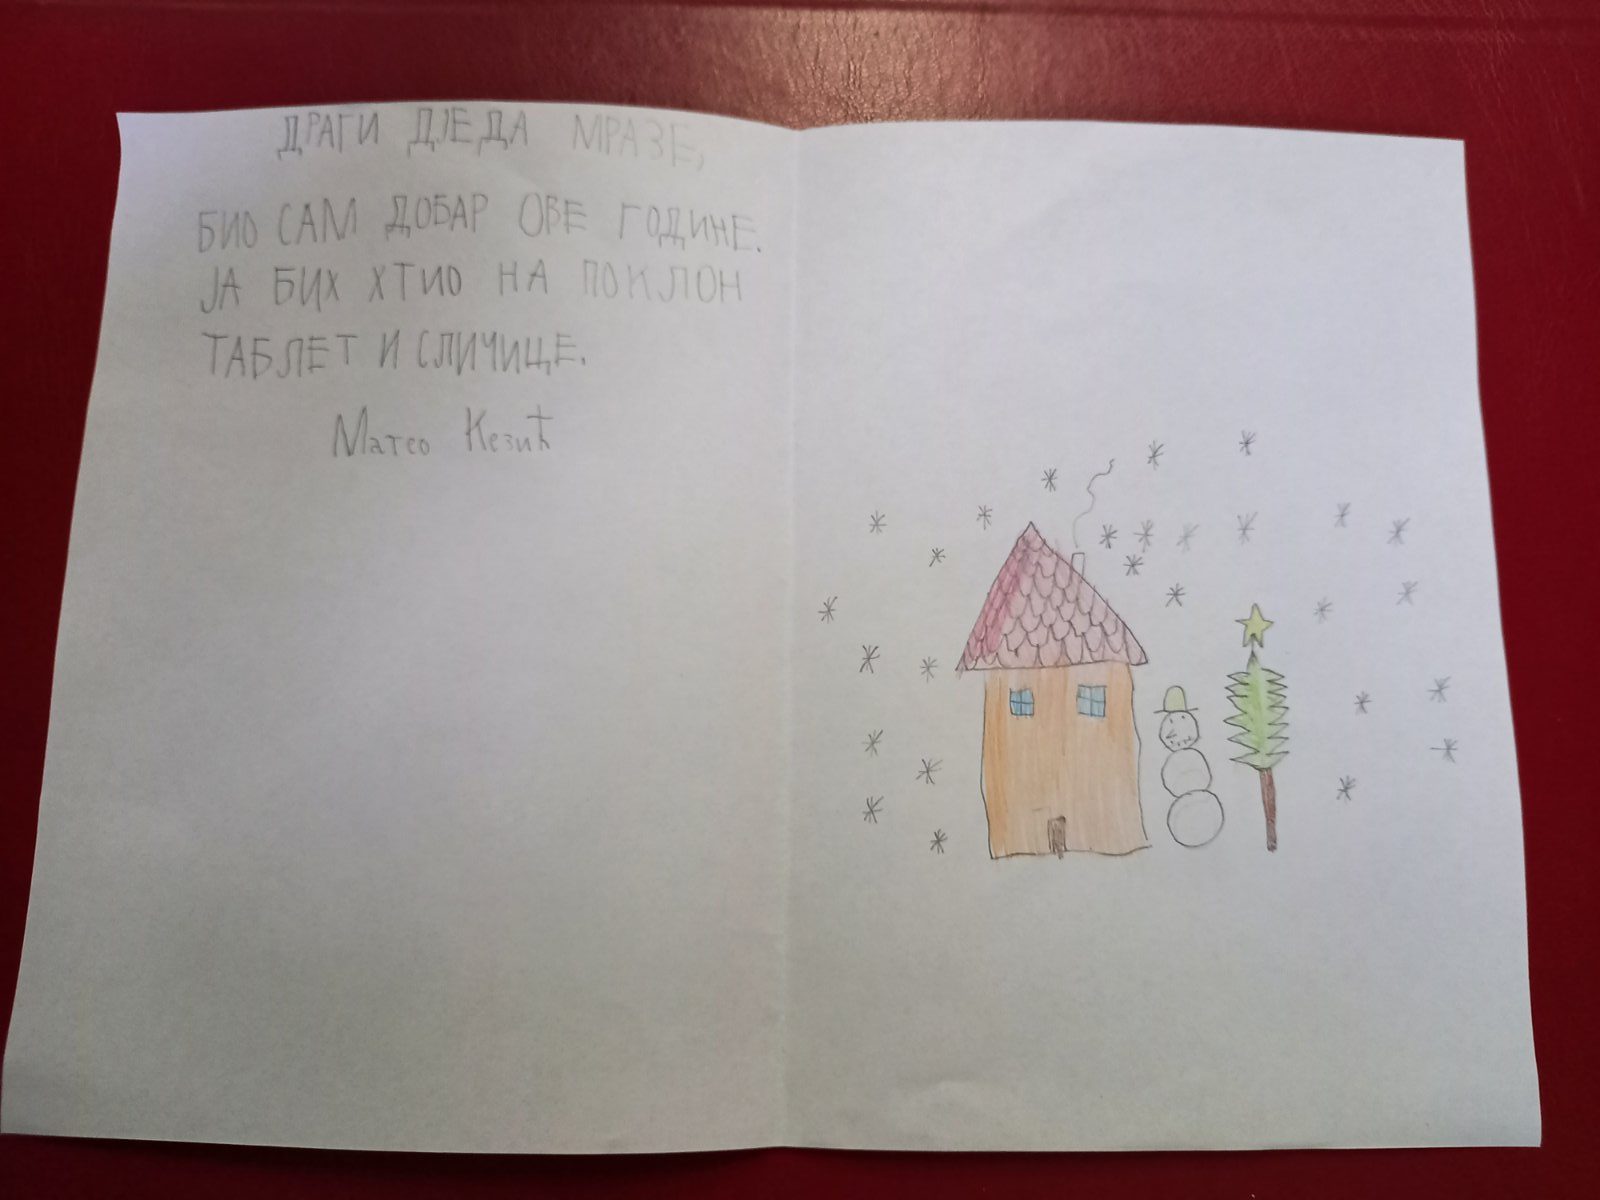 ДРАГИ ДЈЕДА МРАЗЕ,
БИО САМ ДОБАР ОВЕ ГОДИНЕ.
ЈА БИХ ХТИО НА ПОКЛОН
ТАБЛЕТ И СЛИЧИЦЕ.
Матео Кезић